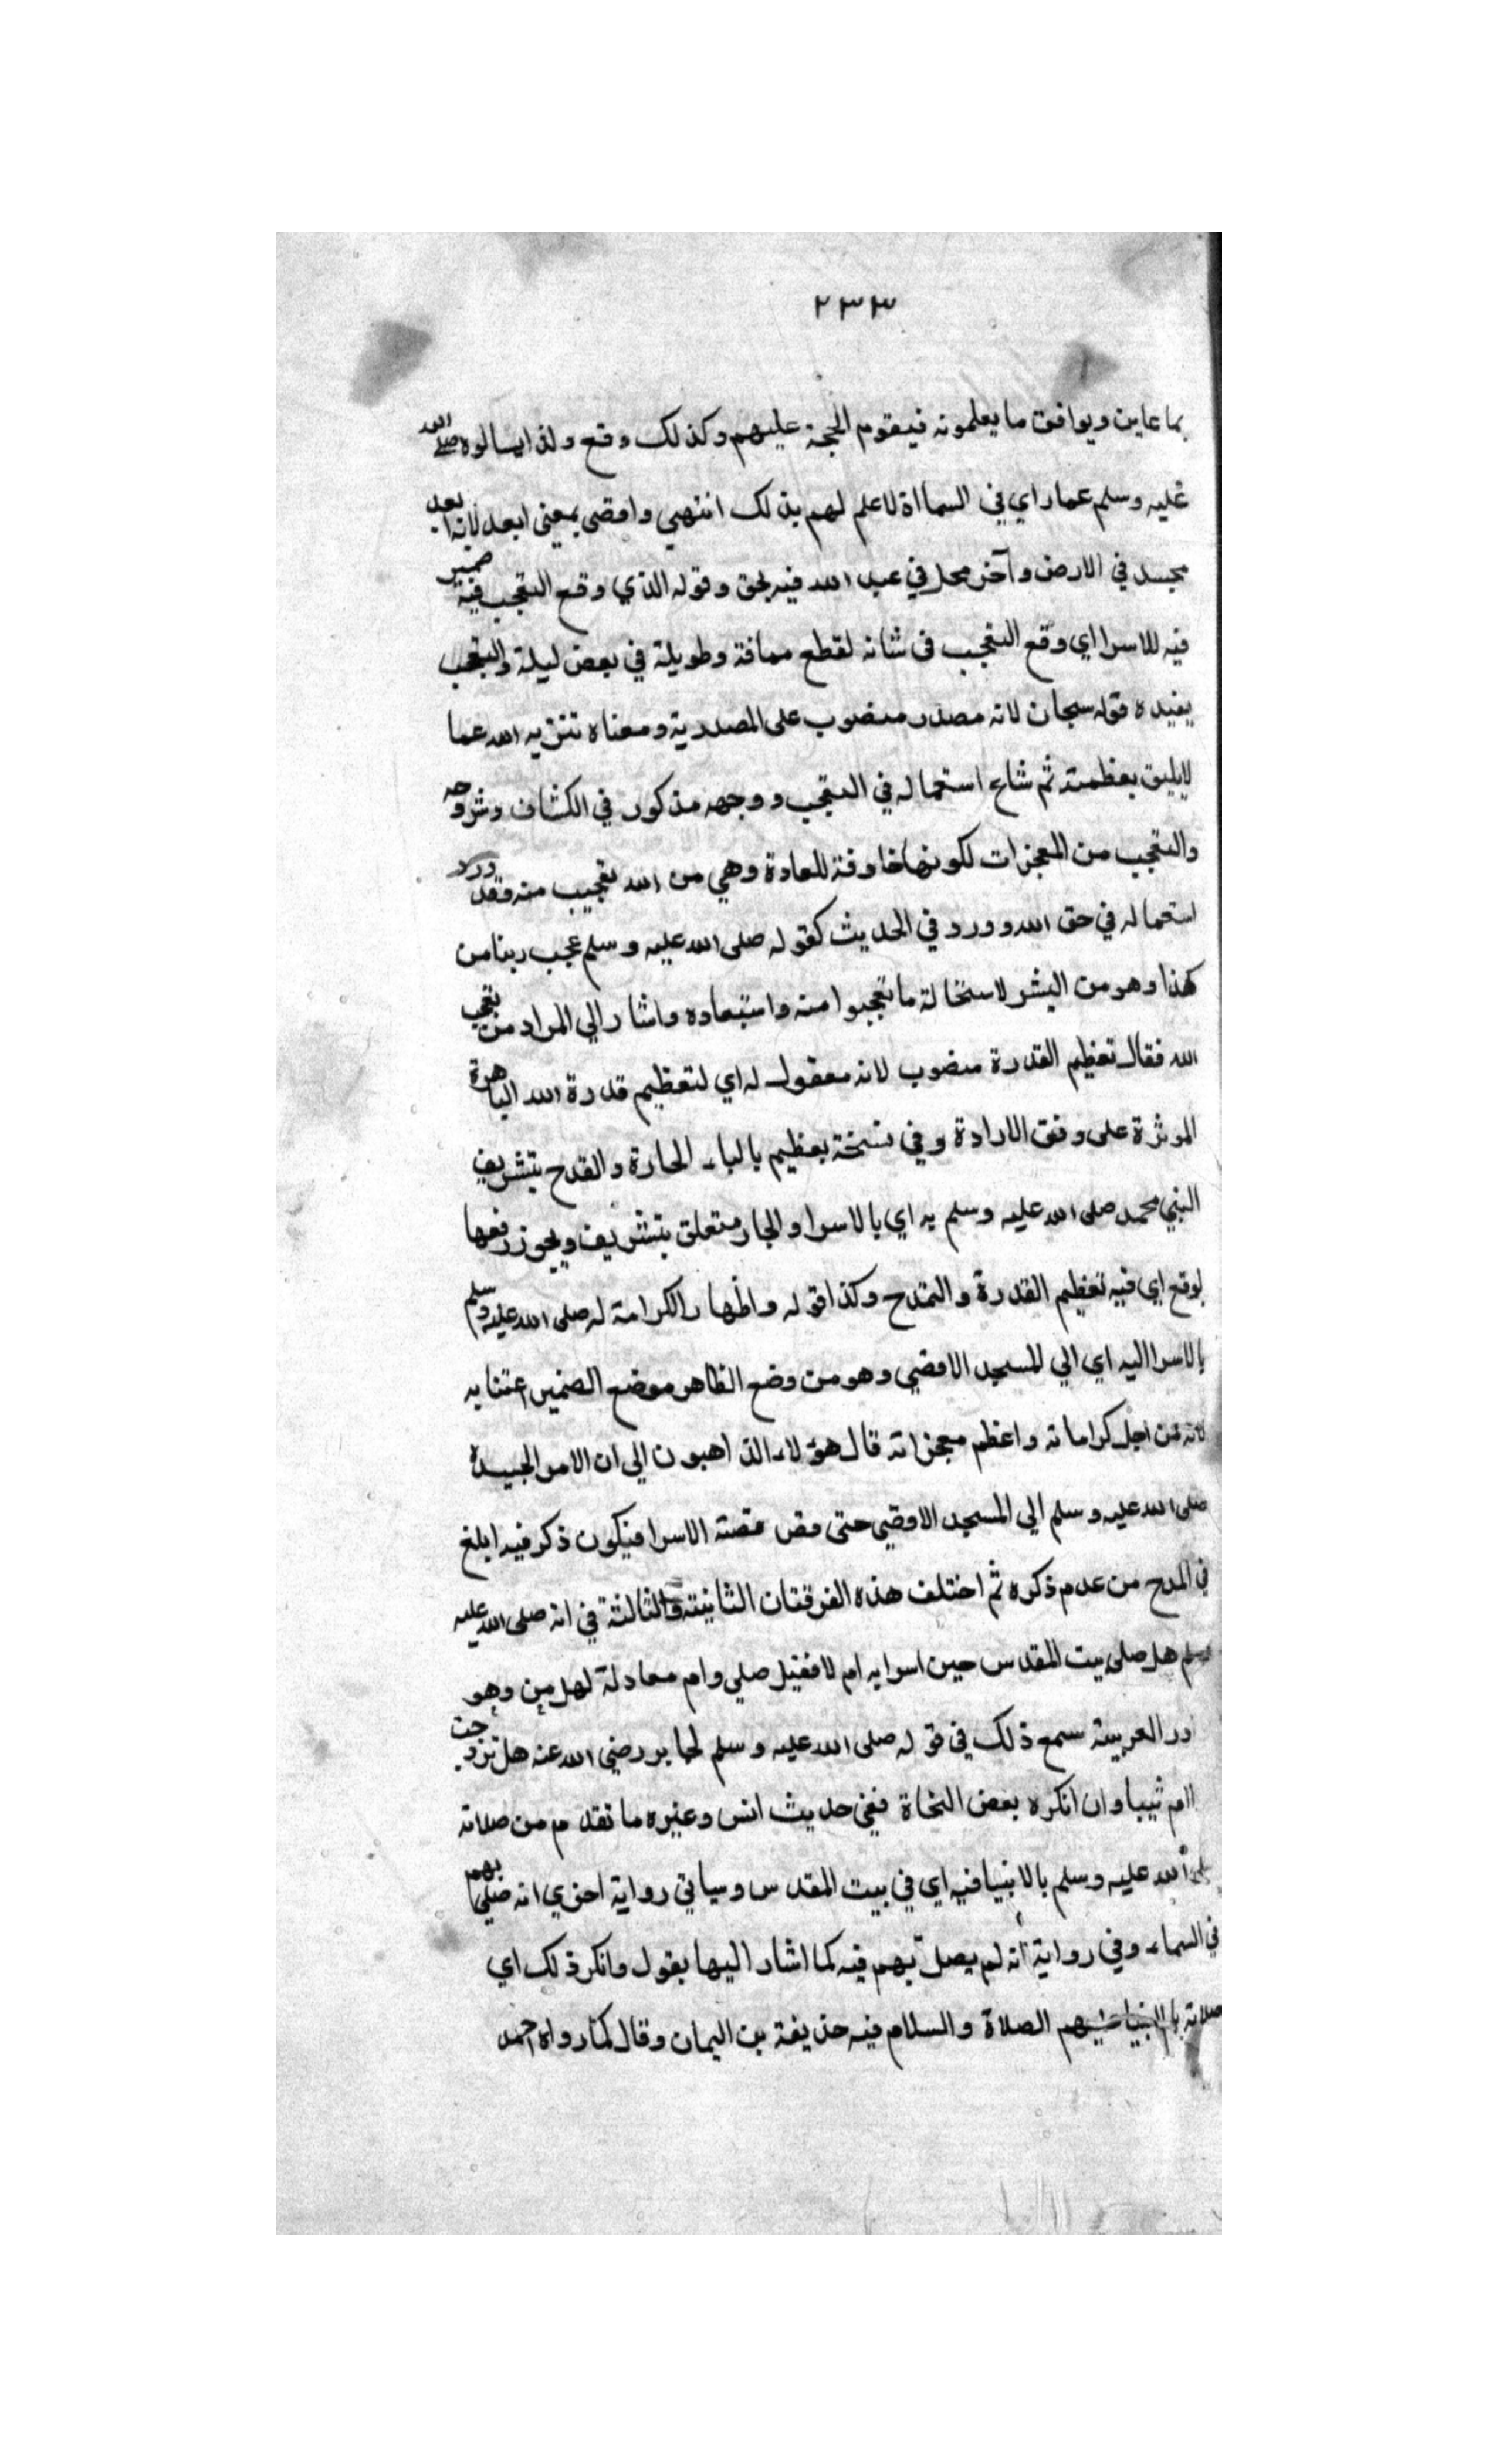 ٢٣٣
بما عاين ويوافق ما يعلمونه فيقوم الحجة عليهم وكذلك وقع ولذا يسالوه صلى الله
عليه وسلم عما راي في السما اذ لا علم لهم بذلك انتهي واقصي بمعني ابعد لانه ابعد
مسجد في الارض وآخر محل في عبد الله فيه بحق وقوله الذي وقع التعجب فيه ضمير
فيه للاسرا اي وقع التعجب في شانه لقطع مسافة وطويلة في بعض ليلة والتعجب
يفيده قوله سبحان لانه مصدر منصوب على المصدرية ومعناه تنزيه الله عما
لا يليق بعظمته ثم شاع استعماله في التعجب ووجهه مذكور في الكشاف وشروحه
والتعجب من المعجزات لكونها خارقة للعادة وهي من الله تعجيب منه وقد ورد
استعماله في حق الله وورد في الحديث كقوله صلى الله عليه وسلم عجب ربنا من
كهذا وهو من البشر لاستحالة ما تعجبوا منه واستبعاده واشار الي المراد من تعجب
الله فقال تعظيم القدرة منصوب لانه مفعول له اي لتعظيم قدرة الله الباهرة
الموثرة على وفق الارادة وفي نسخة بعظيم بالباء الجارة والقدح بتشريف
النبي محمد صلى الله عليه وسلم به اي بالاسرا والجار متعلق بتشريف ويجوز رفعها
بوقع اي فيه تعظيم القدرة والتمدح وكذا قوله واظهار الكرامة له صلى الله عليه وسلم
بالاسرا اليه اي الي المسجد الاقصي وهو من وضع الظاهر موضع الضمير اعتنا به
لانه من اجل كراماته واعظم معجزاته قال هؤلاء الذاهبون الي ان الامر الجسيد
صلى الله عليه وسلم الي المسجد الاقصي حتى قص قصة الاسرا فيكون ذكر فيه ابلغ
في المدح من عدم ذكره ثم اختلف هذه الفرقتان الثانية والثالثة في انه صلى الله عليه
وسلم هل صلى بيت المقدس حين اسرا به ام لا فقيل صلى وام معادلة لهل من وهو
ور العربية سمع ذلك في قوله صلى الله عليه وسلم لجابر رضي الله عنه هل تزوجت
ام ثيبا وان انكره بعض النحاة ففي حديث انس وغيره ما تقدم من صلاته
صلى الله عليه وسلم بالانبيا فيه اي في بيت المقدس وسياتي رواية اخري انه صلى بهم
في السماء وفي رواية انه لم يصل بهم فيه كما اشار اليها بقول وانكر ذلك اي
صلاته بالانبيا عليهم الصلاة والسلام فيه حذيفة بن اليمان وقال كما رواه احمد